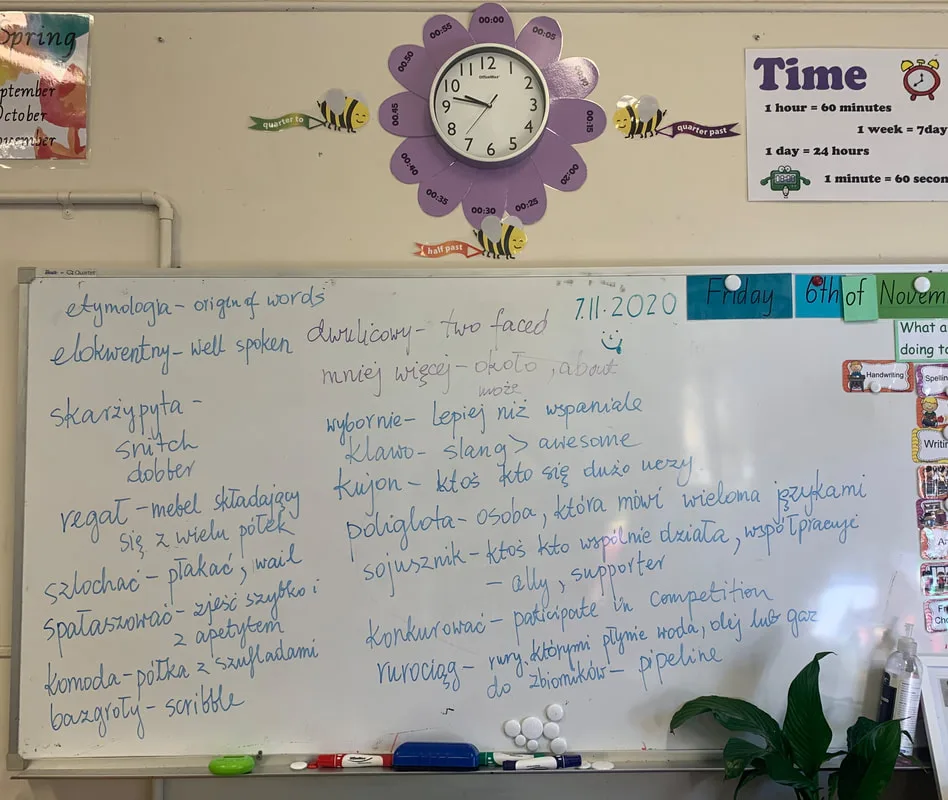 Spring
ptember
October
ovember
00:00
00:05
00:15
00:20
00:25
00:30
00:35
00:40
00:45
00:50
00:55
12
1
2
3
4
5
6
7
8
9
10
11
OfficeMax
quarter to
quarter past
half past
Time
1 hour = 60 minutes
1 week = 7day
1 day = 24 hours
1 minute = 60 secon
7.11.2020
Friday 6th of Novem
What a
doing to
Handwriting
Spellin
Writin
etymologia – origin of words
elokwentny – well spoken
skarżypyta –
snitch
dobber
regał – mebel składający
się z wielu półek
szlochać – płakać, wail
spałaszować – zjeść szybko i
z apetytem
komoda – półka z szufladami
bazgroły – scribble
dwulicowy – two faced
mniej więcej – około, about
może
wybornie – lepiej niż wspaniale
klawo – slang > awesome
kujon – ktoś kto się dużo uczy.
poliglota – osoba, która mówi wieloma językami
sojusznik – ktoś kto wspólnie działa, współpracuje
– ally, supporter
konkurować – paticipate in competition
rurociąg – rury, którymi płynie woda, olej lub gaz
do zbiorników – pipeline